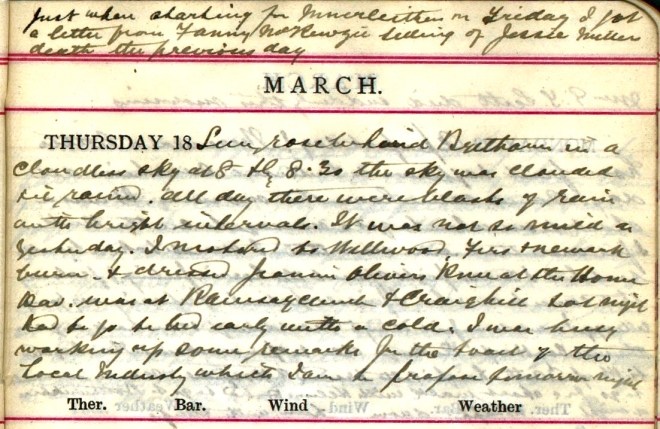 Just when starting for Innerleithen on Friday I got
a letter from Fanny McKenzie telling of Jessie Miller
death the previous day
MARCH.
THURSDAY 18 Sun rose behind in a
cloudless sky at 8 By 8.30 the sky was clouded
all round. All day there were blasts of rain
with bright intervals. It was not so mild as
yesterday. I motored to Wellwood, Firs & Newark
& dressed Jeannie Olivers knee at the Home
was at Ramsaycleuch & Craighill last night
Had to go to bed early with a cold. I was busy
working up some remarks for the toast of the
Local Industry which I am to propose tomorrow night
Ther. Bar. Wind Weather